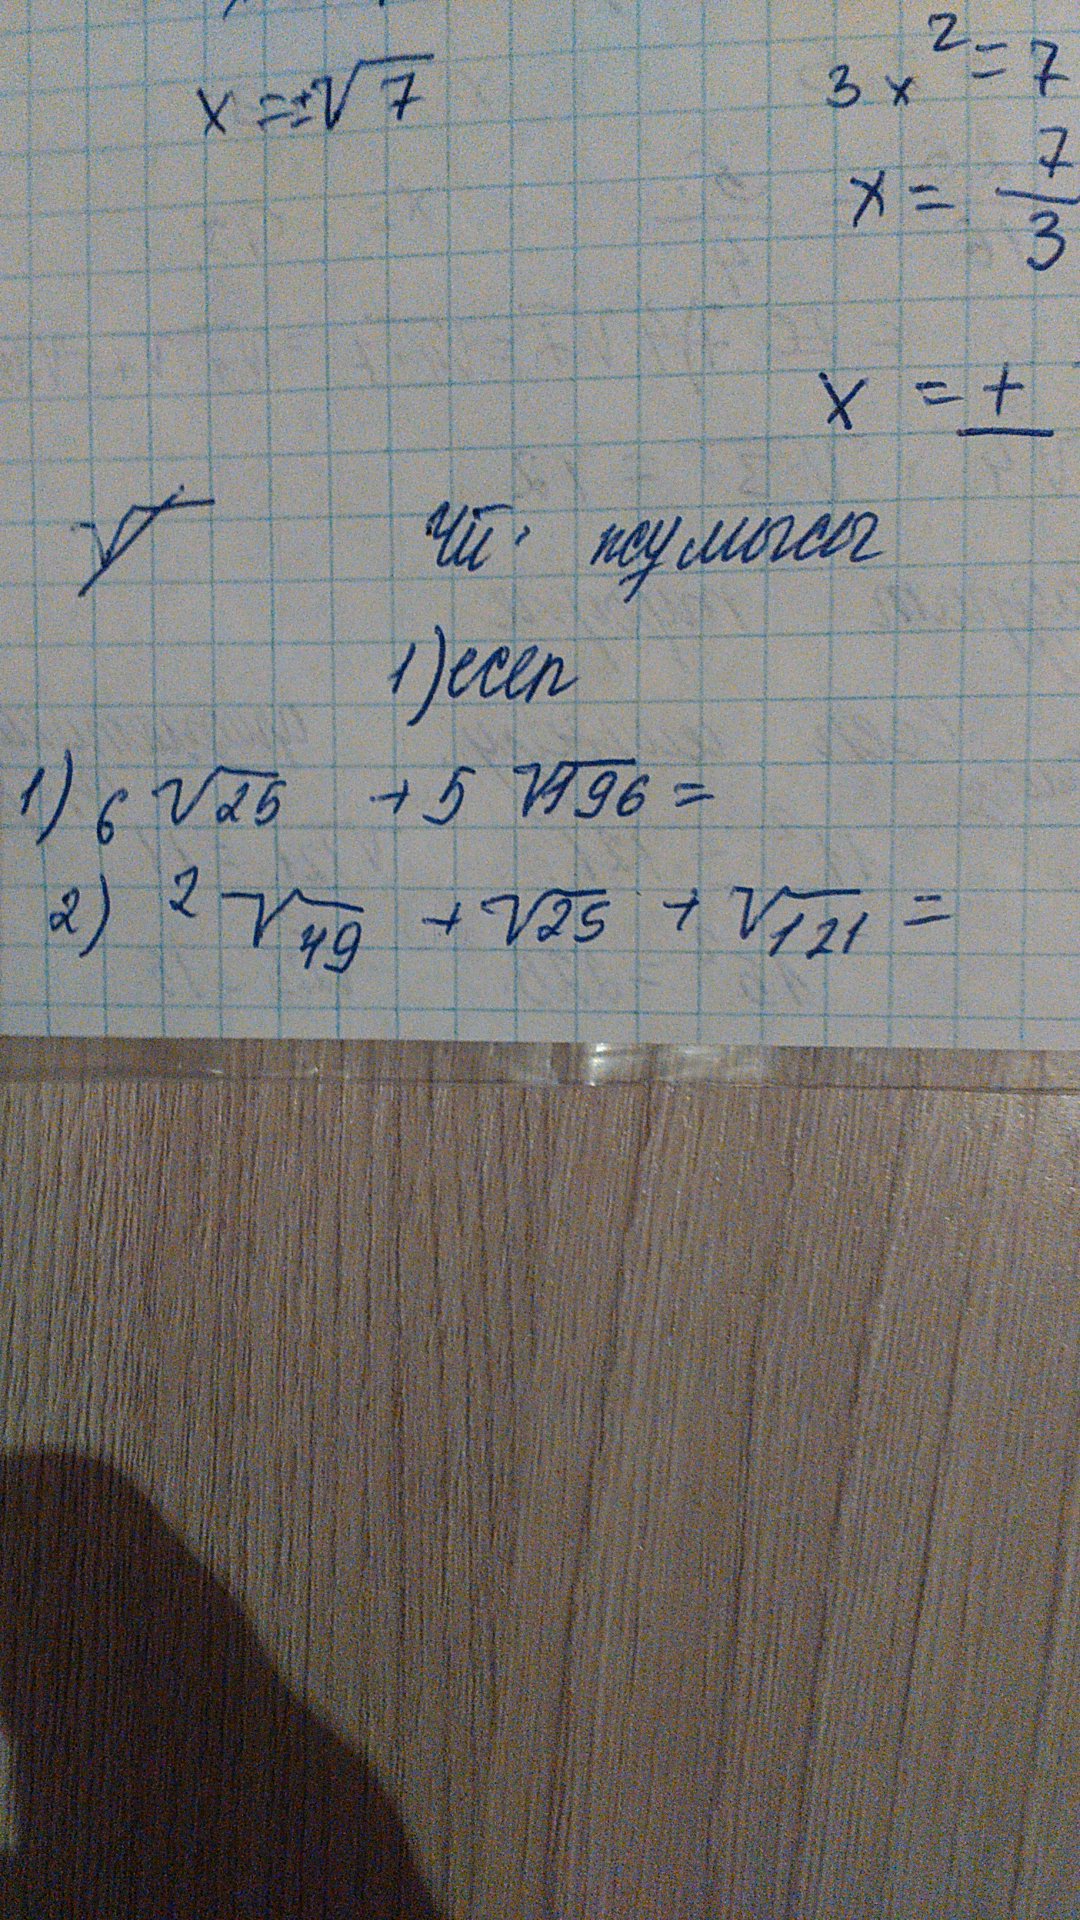 x = ±√7
3x² = 7
x = 7/3
x = ±
√
Үй жұмысы
1) есеп
1) 6√25 + 5√196 =
2) 2√49 + √25 + √121 =